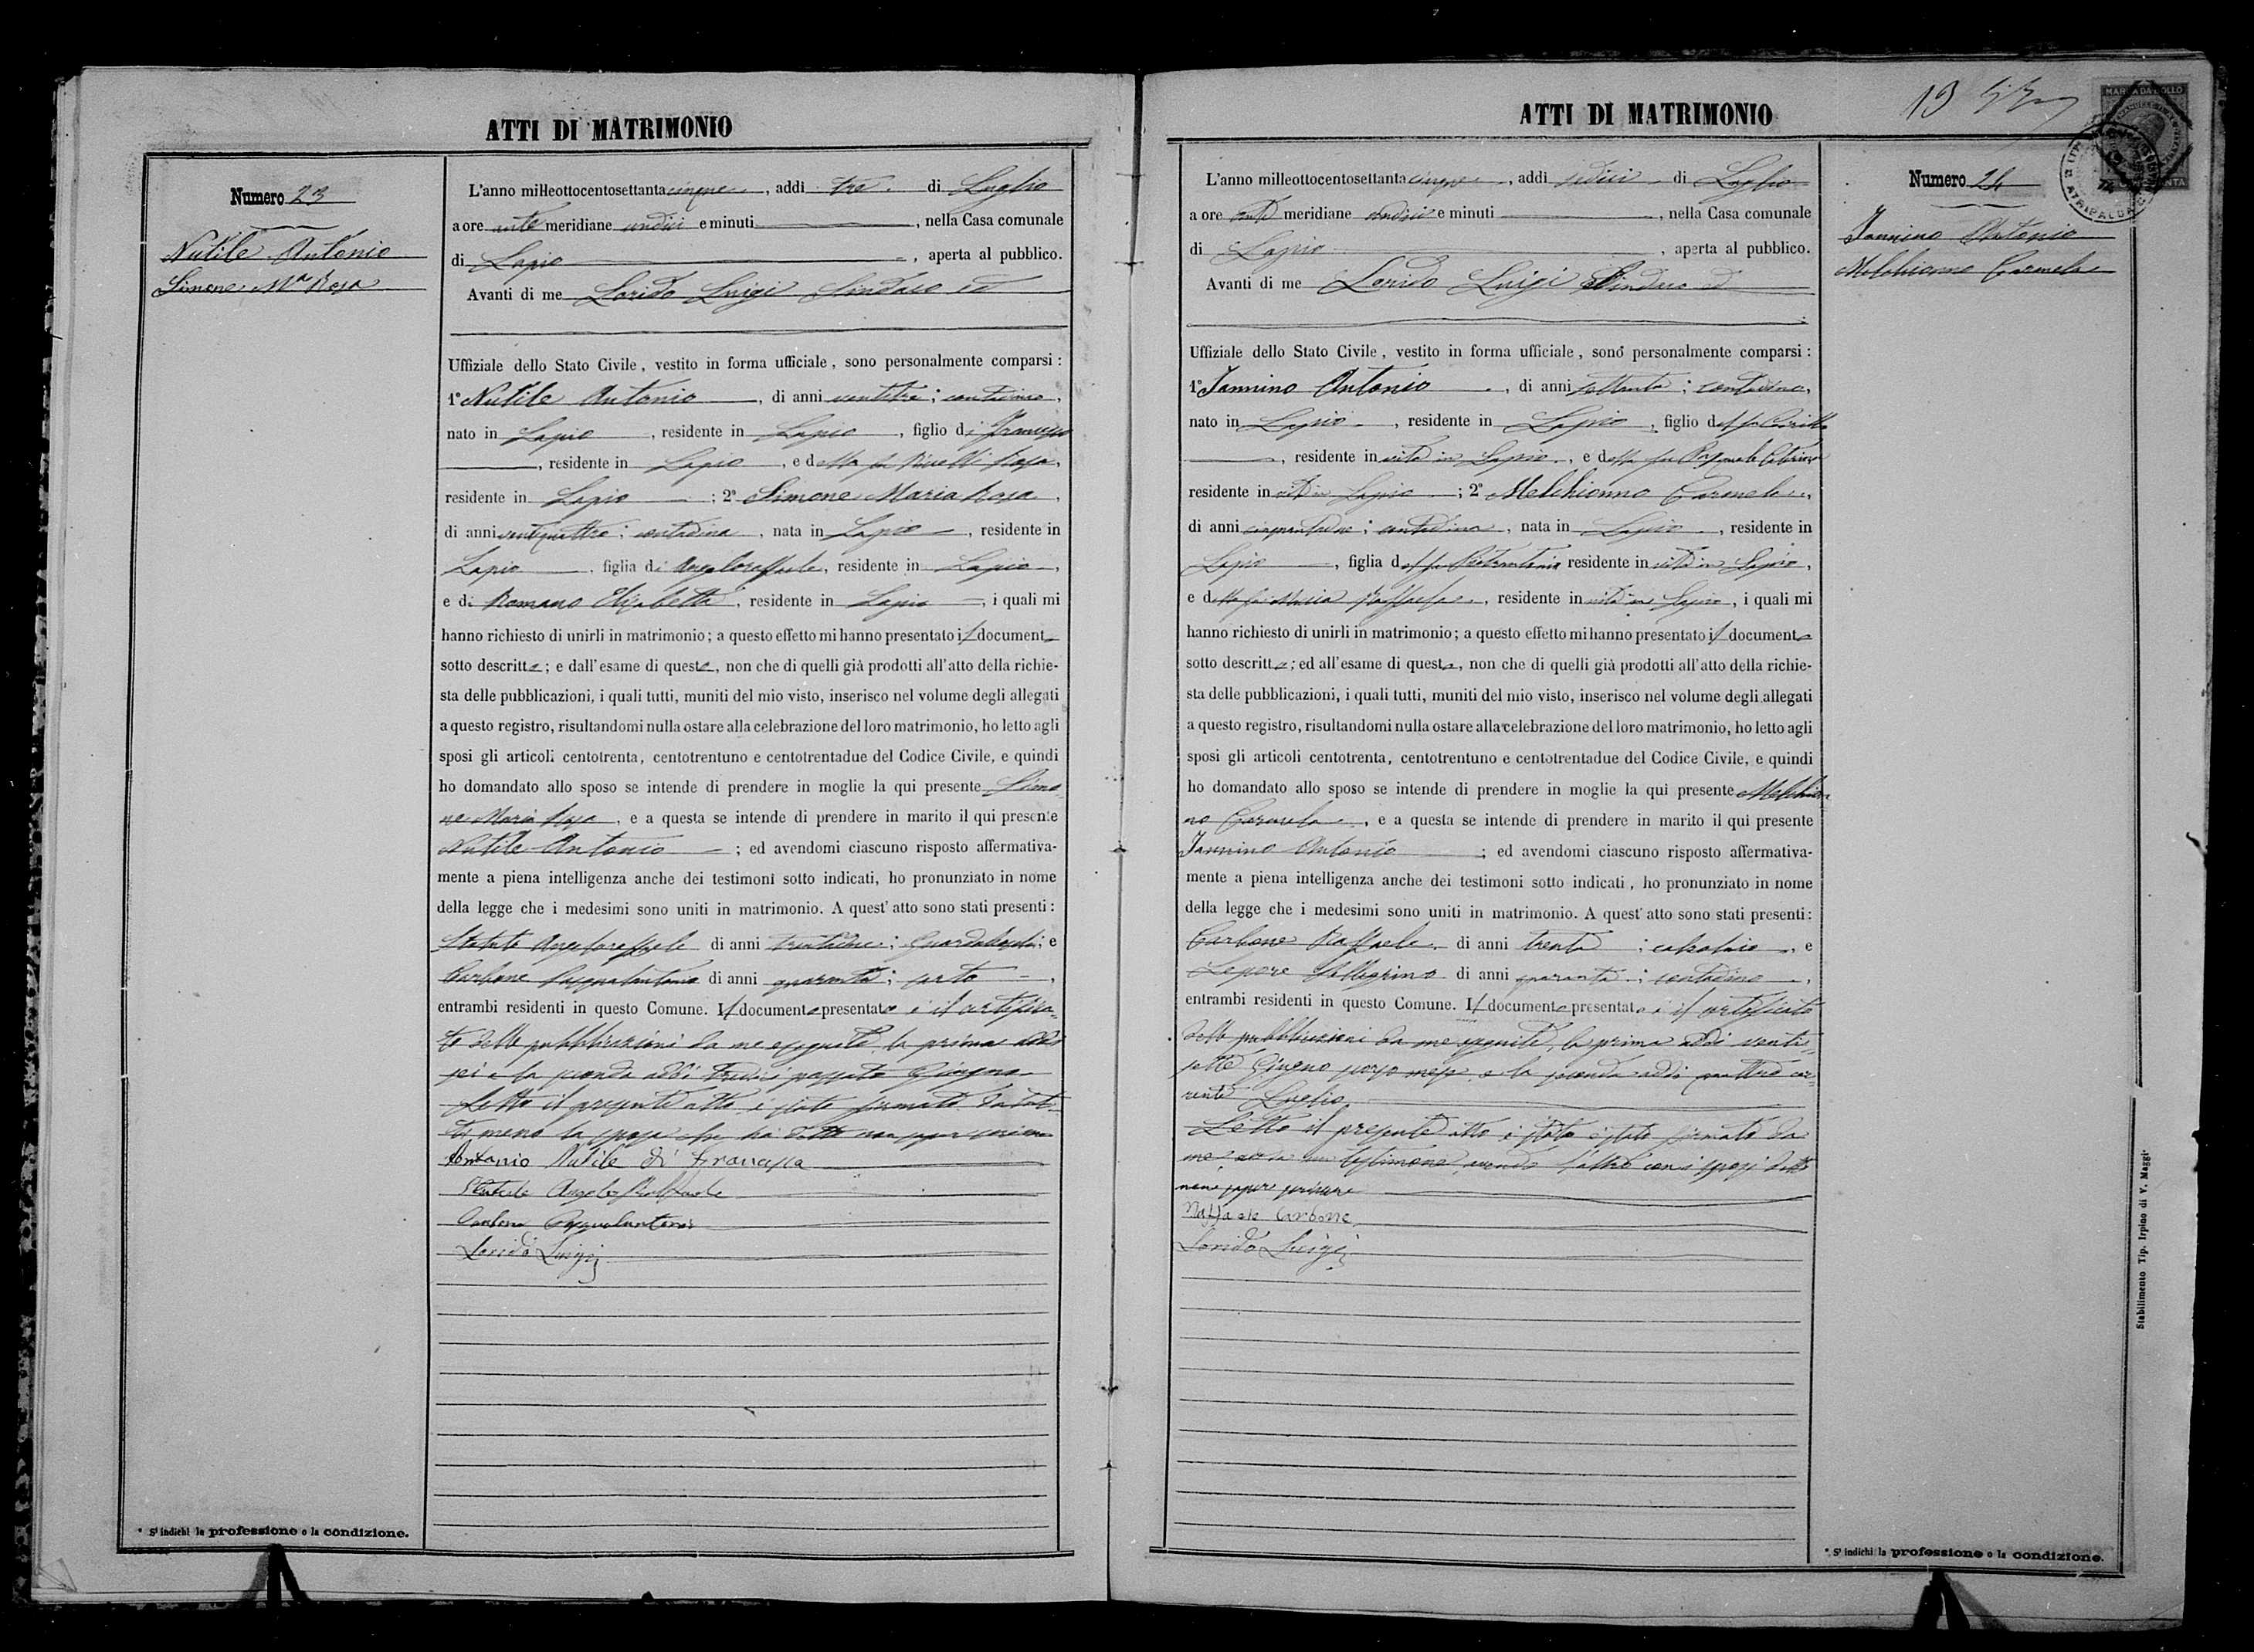 ATTI DI MATRIMONIO
Numero 23
Nutile Antonio
Simone Mª Rosa
L'anno milleottocentosettanta cinque, addì tre di Luglio
a ore ante meridiane undici e minuti , nella Casa comunale
di Lapio , aperta al pubblico.
Avanti di me Lorido Luigi Sindaco ed
Uffiziale dello Stato Civile, vestito in forma ufficiale, sono personalmente comparsi:
1º Nutile Antonio , di anni ventitre; contadino,
nato in Lapio , residente in Lapio , figlio di Francesco
, residente in Lapio , e della fu Rosa,
residente in Lapio ; 2º Simone Maria Rosa ,
di anni ventiquattro; contadina , nata in Lapio , residente in
Lapio , figlia di Angeloraffaele, residente in Lapio ,
e di Romano Elisabetta , residente in Lapio , i quali mi
hanno richiesto di unirli in matrimonio; a questo effetto mi hanno presentato il documento
sotto descritto; e dall'esame di questo, non che di quelli già prodotti all'atto della richie-
sta delle pubblicazioni, i quali tutti, muniti del mio visto, inserisco nel volume degli allegati
a questo registro, risultandomi nulla ostare alla celebrazione del loro matrimonio, ho letto agli
sposi gli articoli centotrenta, centotrentuno e centotrentadue del Codice Civile, e quindi
ho domandato allo sposo se intende di prendere in moglie la qui presente Simo-
ne Maria Rosa , e a questa se intende di prendere in marito il qui presente
Nutile Antonio ; ed avendomi ciascuno risposto affermativa-
mente a piena intelligenza anche dei testimoni sotto indicati, ho pronunziato in nome
della legge che i medesimi sono uniti in matrimonio. A quest'atto sono stati presenti:
Angeloraffaele di anni trentadue; e
Carbone Pasqualantonio di anni quaranta; sarto ,
entrambi residenti in questo Comune. Il documento presentato è il certifica-
to delle pubblicazioni da me eseguite, la prima addì
sei e la seconda addì tredici passato Giugno
Letto il presente atto è stato firmato da tut-
ti meno la sposa che ha detto non saper scrivere
Antonio Nutile di Francesco
Angelo Raffaele
Carbone Pasqualantonio
Lorido Luigi
* S'indichi la professione o la condizione.
ATTI DI MATRIMONIO
13
MARCA DA BOLLO
ATRIPALDA
Numero 24
Jannino Antonio
Melchionno Carmela
L'anno milleottocentosettanta cinque , addì sedici di Luglio
a ore ante meridiane undici e minuti , nella Casa comunale
di Lapio , aperta al pubblico.
Avanti di me Lorido Luigi Sindaco ed
Uffiziale dello Stato Civile, vestito in forma ufficiale, sono personalmente comparsi:
1º Jannino Antonio , di anni settanta; contadino,
nato in Lapio , residente in Lapio , figlio del fu
, residente in vita in Lapio , e della fu
residente in vita in Lapio ; 2º Melchionno Carmela ,
di anni cinquantadue; contadina , nata in Lapio , residente in
Lapio , figlia del fu Pietrantonio residente in vita in Lapio,
e della fu Maria Raffaela , residente in vita in Lapio , i quali mi
hanno richiesto di unirli in matrimonio; a questo effetto mi hanno presentato il documento
sotto descritto; ed all'esame di questo, non che di quelli già prodotti all'atto della richie-
sta delle pubblicazioni, i quali tutti, muniti del mio visto, inserisco nel volume degli allegati
a questo registro, risultandomi nulla ostare alla celebrazione del loro matrimonio, ho letto agli
sposi gli articoli centotrenta, centotrentuno e centotrentadue del Codice Civile, e quindi
ho domandato allo sposo se intende di prendere in moglie la qui presente Melchion-
no Carmela , e a questa se intende di prendere in marito il qui presente
Jannino Antonio ; ed avendomi ciascuno risposto affermativa-
mente a piena intelligenza anche dei testimoni sotto indicati, ho pronunziato in nome
della legge che i medesimi sono uniti in matrimonio. A quest'atto sono stati presenti:
Carbone Raffaele di anni trenta ; calzolaio , e
Lepore Pellegrino di anni quaranta ; contadino ,
entrambi residenti in questo Comune. Il documento presentato è il certificato
delle pubblicazioni da me eseguite, la prima addì venti-
sette Giugno scorso mese e la seconda addì quattro cor-
rente Luglio
Letto il presente atto è stato è stato firmato da
me e da un testimone, avendo l'altro con i sposi detto
non saper scrivere
Raffaele Carbone
Lorido Luigi
Stabilimento Tip. Irpino di V. Maggi
* S'indichi la professione o la condizione.